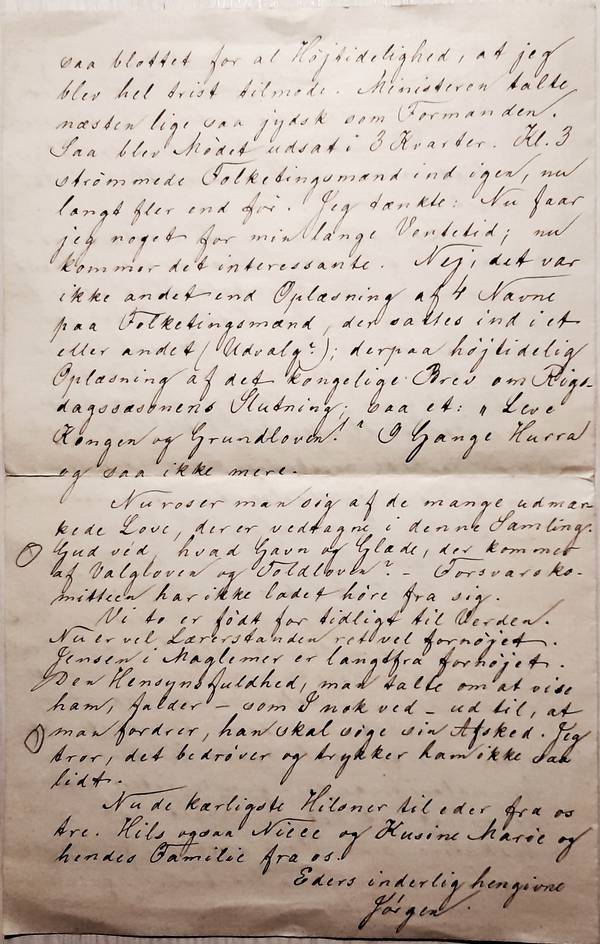 saa blottet for al Højtidelighed, at jeg
blev hel trist tilmode. Ministeren talte
næsten lige saa jydsk som Formanden.
Saa blev Mødet udsat i 3 Kvarter. Kl. 3
strømmede Folketingsmænd ind igen, nu
langt fler end før. Jeg tænkte: Nu faar
jeg noget for min lange Ventetid; nu
kommer det interessante. Nej, det var
ikke andet end Oplæsning af 4 Navne
paa Folketingsmænd, der sattes ind i et
eller andet (Udvalg?); derpaa højtidelig
Oplæsning af det kongelige Brev om Rigs-
dagssæsonens Slutning; saa et: „Leve
Kongen og Grundloven!“ 9 Gange Hurra
og saa ikke mere.
Nu roser man sig af de mange udmær-
kede Love, der er vedtagne i denne Samling.
Gud véd, hvad Gavn og Glæde, der kommer
af Valgloven og Toldloven? – Forsvarsko-
mitteen har ikke ladet høre fra sig.
Vi to er født for tidligt til Verden.
Nu er vel Lærerstanden ret vel fornøjet.
Jensen i Maglemer er langtfra fornøjet.
Den Hensynsfuldhed, man talte om at vise
ham, falder – som I nok ved – ud til, at
man fordrer, han skal søge sin Afsked. Jeg
tror, det bedrøver og trykker ham ikke saa
lidt.
Nu de kærligste Hilsner til eder fra os
tre. Hils ogsaa Niece og Kusine Marie og
hendes Familie fra os.
Eders inderlig hengivne
Jørgen.